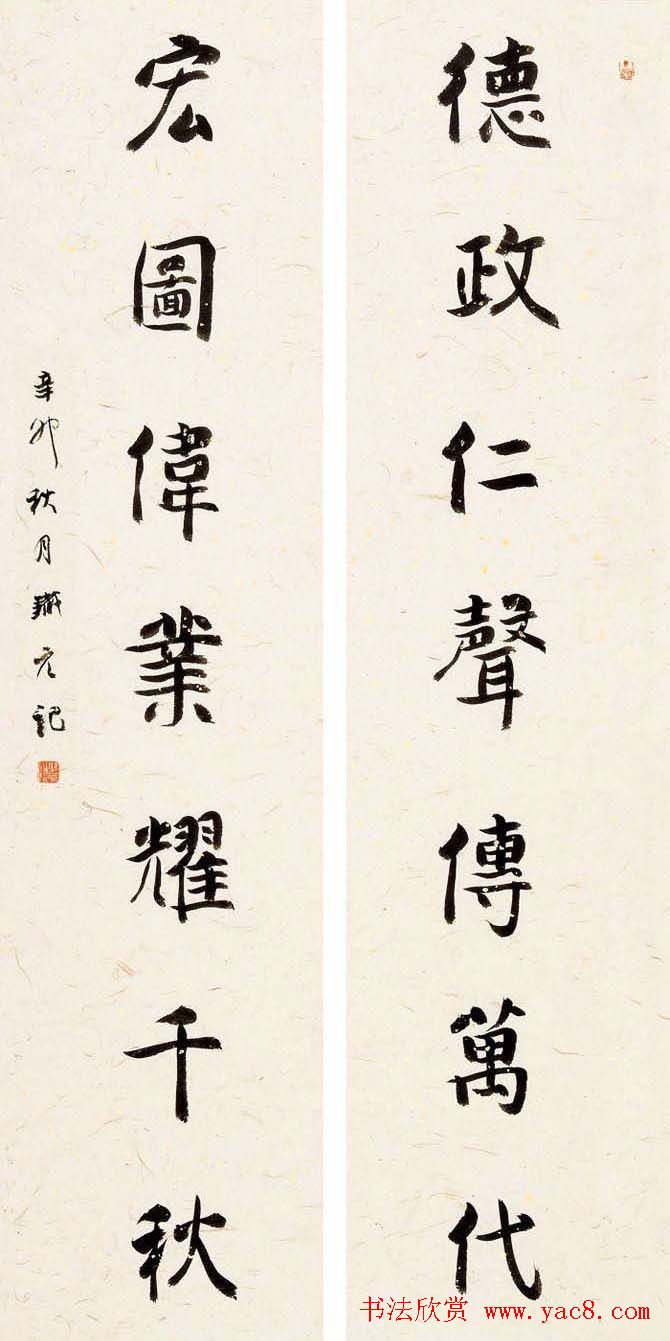 德政仁聲傳萬代
宏圖偉業耀千秋
辛卯秋月 記
书法欣赏 www.yac8.com